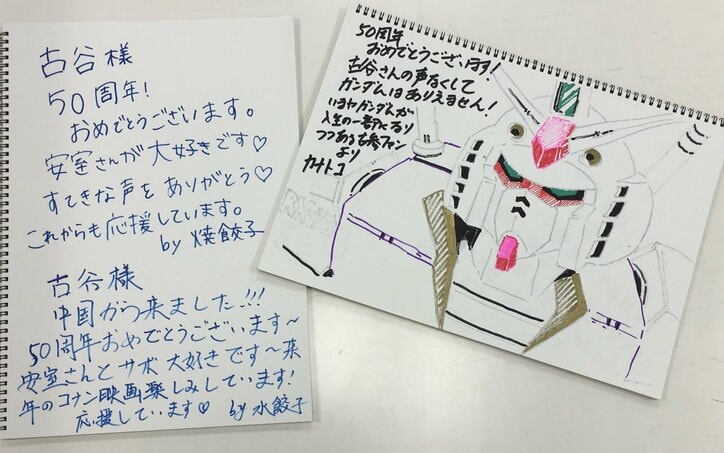 古谷様
50周年!
おめでとうございます。
安室さんが大好きです♡
すてきな声をありがとう♡
これからも応援しています。
by 焼餃子
古谷様
中国から来ました!!!
50周年おめでとうございます〜
安室さんとサボ大好きです〜来
年のコナン映画楽しみしています!
応援しています♡ by 水餃子
50周年
おめでとうございます!
古谷さんの声なくして
ガンダムはありえません!
いまやガンダムが
人生の一部になり
つつある古参ファン
より
カナトコ